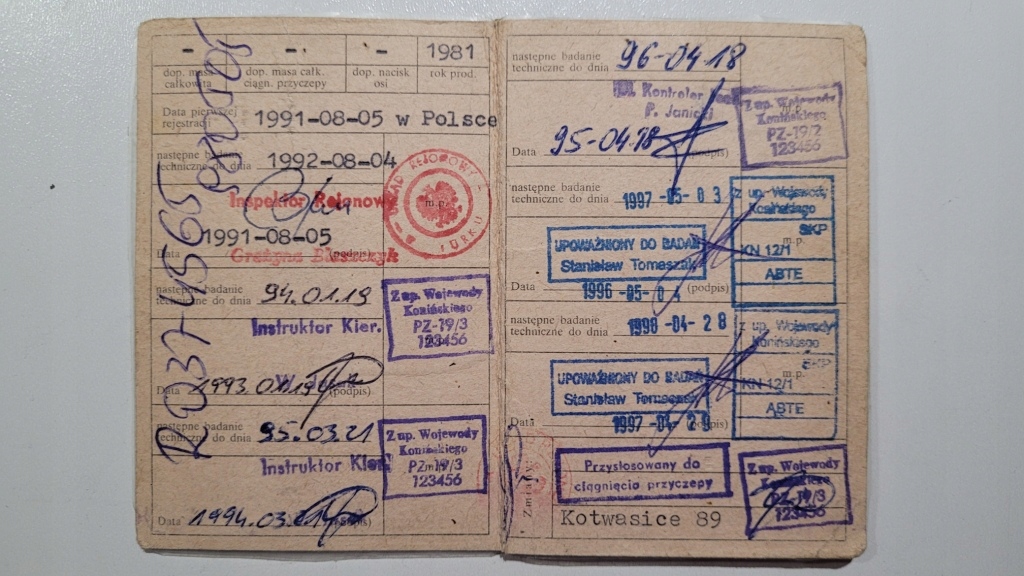 - - - 1981
dop. masa całkowita dop. masa całk. ciągn. przyczepy dop. nacisk osi rok prod.
Data pierwszej rejestracji 1991-08-05 w Polsce
następne badanie techniczne do dnia 1992-08-04
Inspektor Rejonowy
URZĄD REJONOWY W TURKU
m.p.
1991-08-05
Data (podpis)
Grażyna Błaszczyk
następne badanie techniczne do dnia 94.01.19
Z up. Wojewody
Konińskiego
PZ-19/3
123456
Instruktor Kier.
Data 1993.01.19 (podpis)
następne badanie techniczne do dnia 95.03.21
Z up. Wojewody
Konińskiego
PZ-19/3
123456
Instruktor Kier.
Data 1994.03.21
następne badanie techniczne do dnia 96-04-18
Kontroler
P. Janicki
Z up. Wojewody
Konińskiego
PZ-19/2
123456
Data 95-04-18 (podpis)
następne badanie techniczne do dnia 1997-05-03
z up. Wojewody
Konińskiego
SKP
m.p.
KN 12/1
ABTE
UPOWAŻNIONY DO BADAŃ
Stanisław Tomaszak
Data 1996-05-04 (podpis)
następne badanie techniczne do dnia 1998-04-28
z up. Wojewody
Konińskiego
SKP
m.p.
KN 12/1
ABTE
UPOWAŻNIONY DO BADAŃ
Stanisław Tomaszak
Data 1997-04-29 (podpis)
Przystosowany do
ciągnięcia przyczepy
Z up. Wojewody
Konińskiego
PZ-19/3
123456
Kotwasice 89